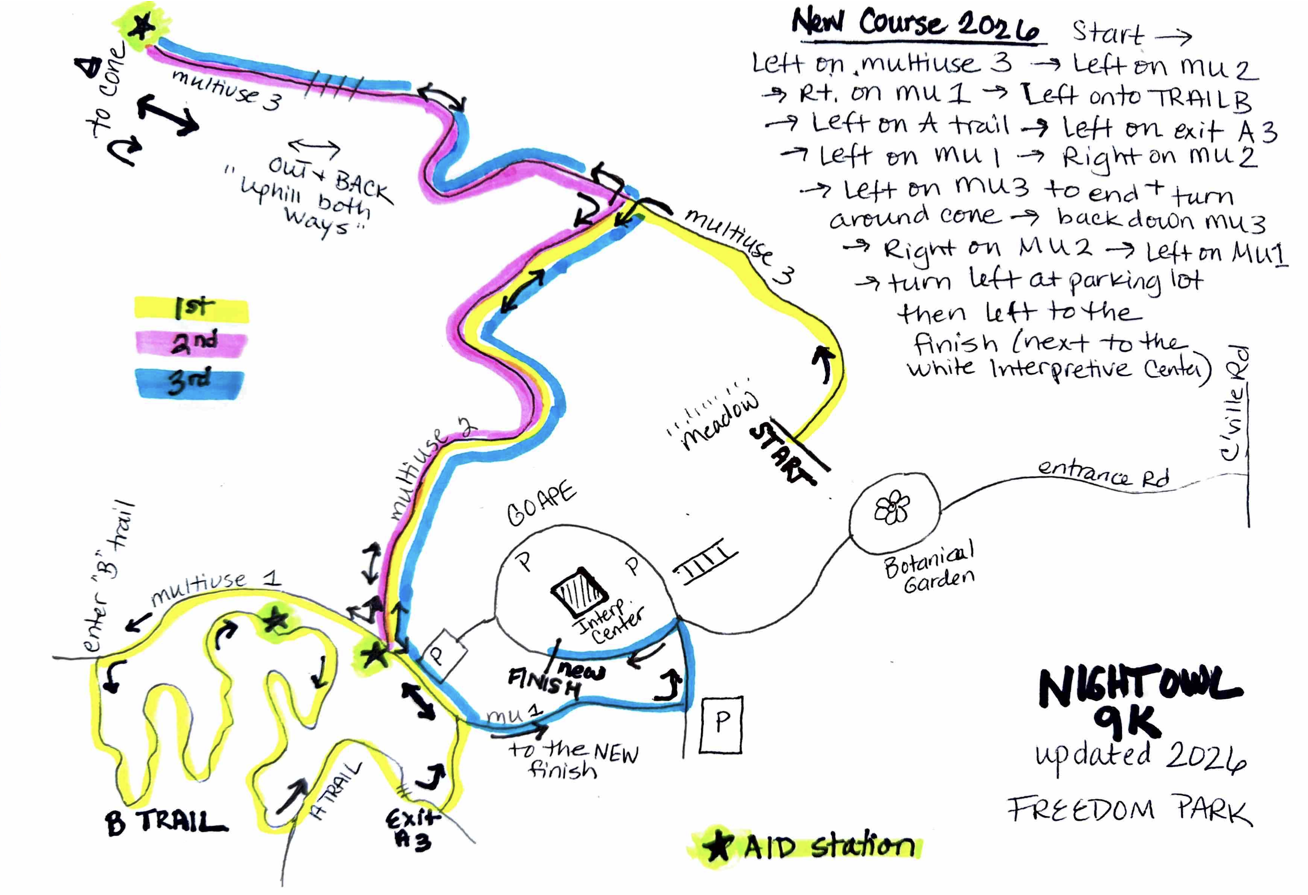 New Course 2026 Start →
Left on multiuse 3 → Left on mu 2
→ Rt. on mu 1 → Left onto TRAIL B
→ Left on A trail → Left on exit A3
→ Left on mu 1 → Right on mu 2
→ Left on mu3 to end + turn
around cone → back down mu3
→ Right on MU2 → Left on MU1
→ turn left at parking lot
then left to the
finish (next to the
white Interpretive Center)
to cone
multiuse 3
OUT + BACK
"uphill both
ways"
multiuse 3
1st
2nd
3rd
meadow
START
multiuse 2
C'ville Rd
entrance Rd
Botanical
Garden
GO APE
P
P
Interp.
Center
P
new
FINISH
mu 1
to the NEW
finish
P
enter "B" trail
multiuse 1
B TRAIL
A TRAIL
Exit
A3
NIGHT OWL
9K
updated 2026
FREEDOM PARK
AID station